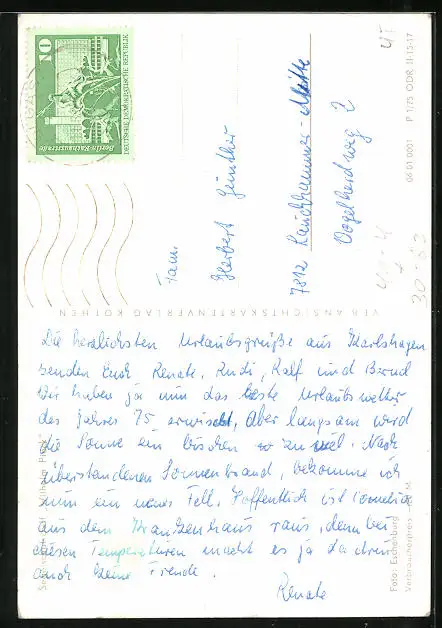 10
DEUTSCHE DEMOKRATISCHE REPUBLIK
Berlin-Rathausstraße
Fam.
Herbert Günther
7812 Lauchhammer-Mitte
Vogelherdweg 2
VEB ANSICHTSKARTENVERLAG KÖTHEN
06 01 0001 P 1/75 ODR II-15-17
Foto: Eschenburg
Verbraucherpreis M
Die herzlichsten Urlaubsgrüße aus Karlshagen
senden Euch Renate, Rudi, Ralf und Bernd
Wir haben ja nun das beste Urlaubswetter
des Jahres 75 erwischt, aber langsam wird
die Sonne ein bischen zu viel. Nach
überstandenen Sonnenbrand, bekomme ich
nun ein neues Fell. Hoffentlich ist Cornelia
aus dem Krankenhaus raus, denn bei
diesen Temperaturen macht es ja da drin
auch keine Freude.
Renate